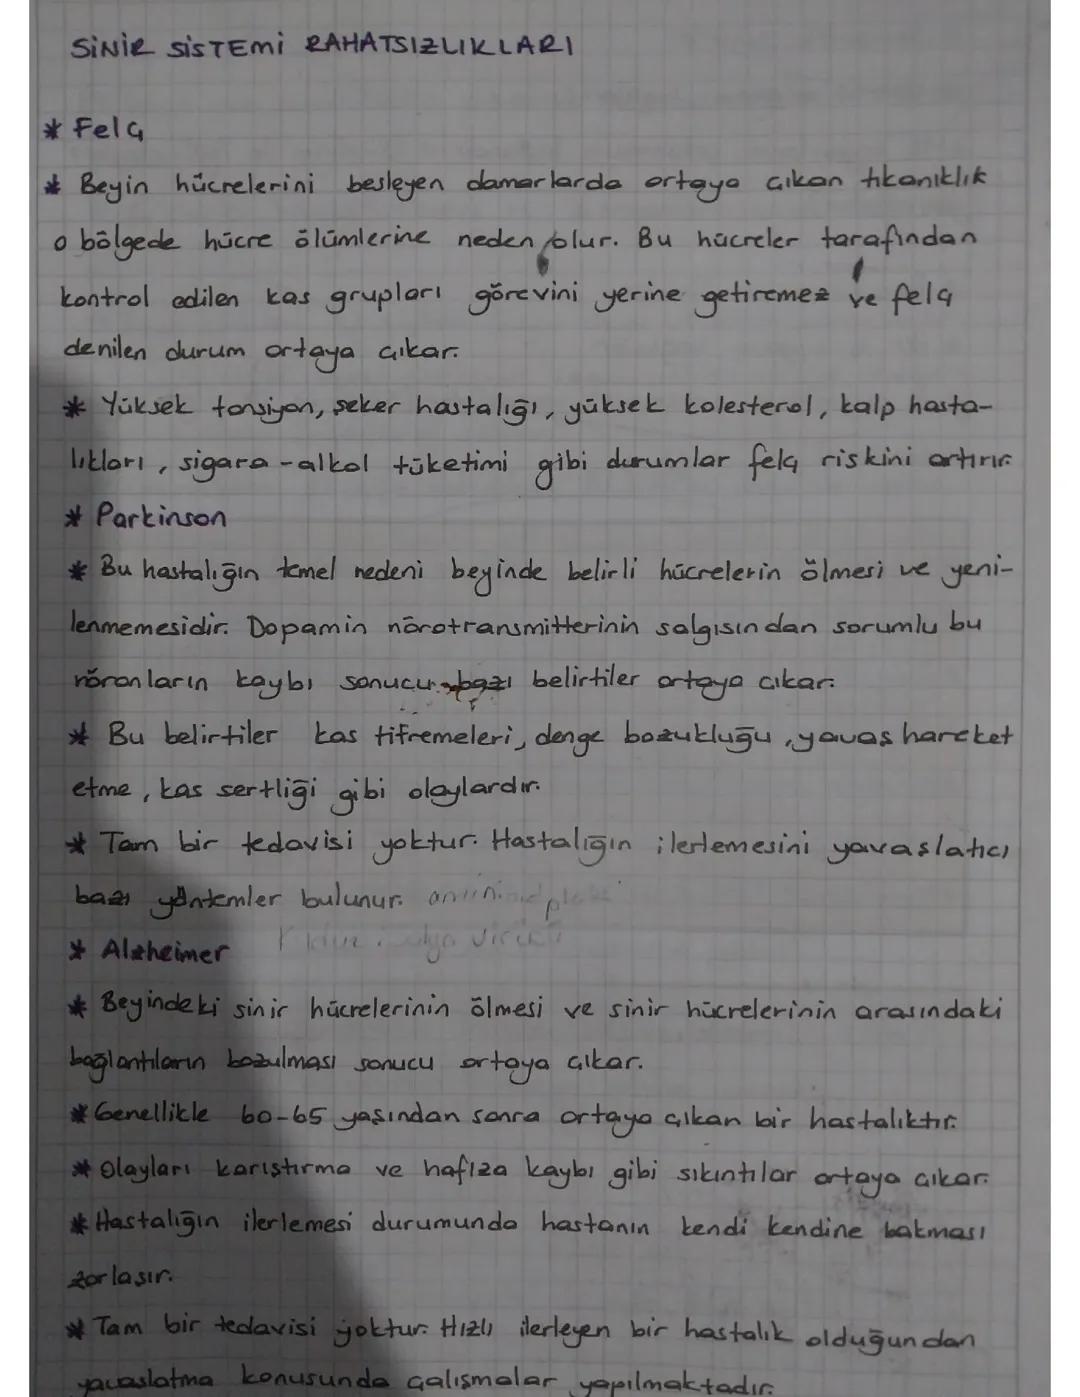 SİNİR SİSTEMİ RAHATSIZLIKLARI
* Felç
* Beyin hücrelerini besleyen damarlarda ortaya çıkan tıkanıklık
o bölgede hücre ölümlerine neden olur. Bu hücreler tarafından
kontrol edilen kas grupları görevini yerine getiremez ve felç
denilen durum ortaya çıkar.
* Yüksek tansiyon, şeker hastalığı, yüksek kolesterol, kalp hasta-
lıkları, sigara-alkol tüketimi gibi durumlar felç riskini artırır.
* Parkinson
* Bu hastalığın temel nedeni beyinde belirli hücrelerin ölmesi ve yeni-
lenmemesidir. Dopamin nörotransmitterinin salgısından sorumlu bu
nöronların kaybı sonucu bazı belirtiler ortaya çıkar.
* Bu belirtiler kas titremeleri, denge bozukluğu, yavaş hareket
etme, kas sertliği gibi olaylardır.
* Tam bir tedavisi yoktur. Hastalığın ilerlemesini yavaşlatıcı
bazı yöntemler bulunur.
* Alzheimer
* Beyindeki sinir hücrelerinin ölmesi ve sinir hücrelerinin arasındaki
bağlantıların bozulması sonucu ortaya çıkar.
* Genellikle 60-65 yaşından sonra ortaya çıkan bir hastalıktır.
* Olayları karıştırma ve hafıza kaybı gibi sıkıntılar ortaya çıkar.
* Hastalığın ilerlemesi durumunda hastanın kendi kendine bakması
zorlaşır.
* Tam bir tedavisi yoktur. Hızlı ilerleyen bir hastalık olduğundan
yavaşlatma konusunda çalışmalar yapılmaktadır.